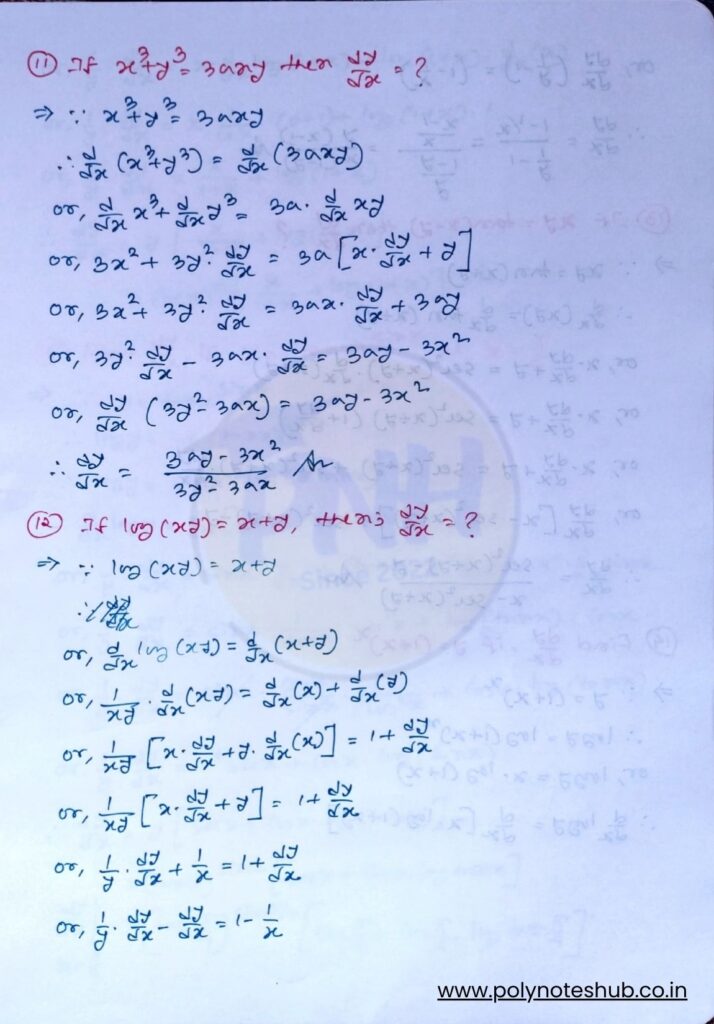 ⑪ If x³+y³=3axy then dy/dx = ?
⇒ ∵ x³+y³=3axy
∴ d/dx (x³+y³) = d/dx (3axy)
or, d/dx x³ + d/dx y³ = 3a· d/dx xy
or, 3x² + 3y²· dy/dx = 3a [x· dy/dx + y]
or, 3x² + 3y²· dy/dx = 3ax· dy/dx + 3ay
or, 3y²· dy/dx - 3ax· dy/dx = 3ay - 3x²
or, dy/dx (3y² - 3ax) = 3ay - 3x²
∴ dy/dx = (3ay - 3x²)/(3y² - 3ax) An
⑫ If log(xy) = x+y, then dy/dx = ?
⇒ ∵ log(xy) = x+y
or, d/dx log(xy) = d/dx (x+y)
or, 1/xy · d/dx (xy) = d/dx (x) + d/dx (y)
or, 1/xy [x· dy/dx + y· d/dx (x)] = 1 + dy/dx
or, 1/xy [x· dy/dx + y] = 1 + dy/dx
or, 1/y · dy/dx + 1/x = 1 + dy/dx
or, 1/y · dy/dx - dy/dx = 1 - 1/x
PNH
www.polynoteshub.co.in